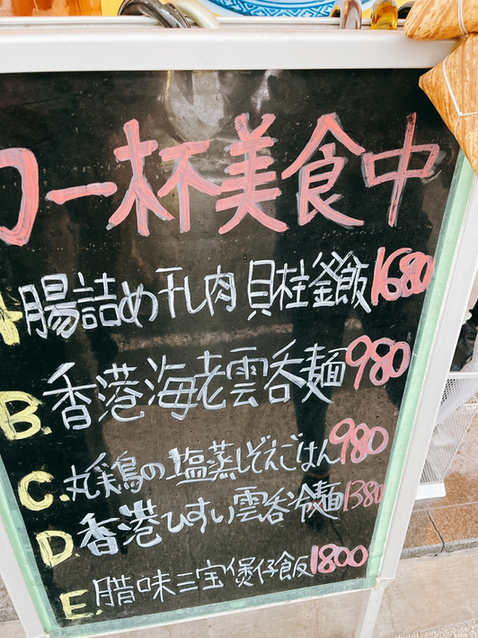 一杯美食中
腸詰め干し肉 貝柱釜飯 1680
B. 香港海老雲呑麺 980
C. 丸鶏の塩蒸しぞえごはん 980
D. 香港ひすい雲呑冷麺 1380
E. 腊味三宝煲仔飯 1800